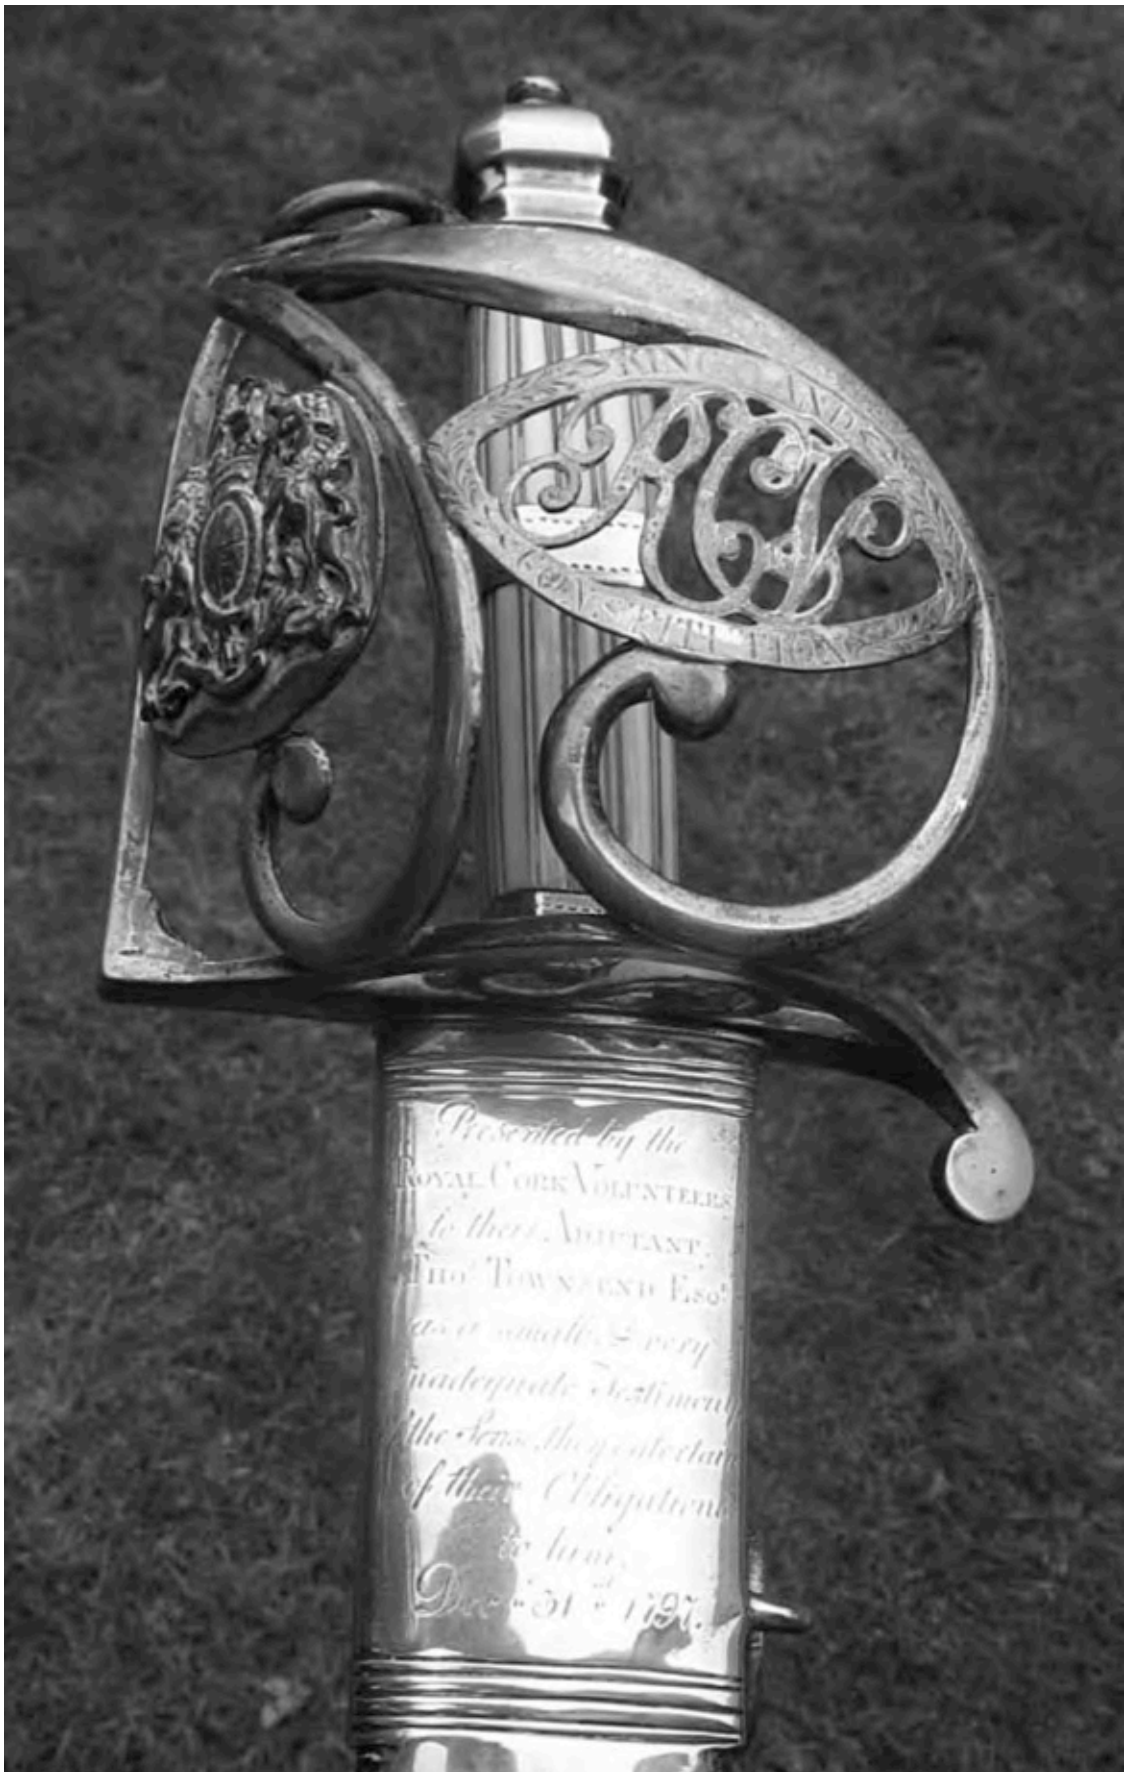 KING AND
RCV
CONSTITUTION
Presented by the
ROYAL CORK VOLUNTEERS
to their ADJUTANT,
THOs TOWNSEND Esqr
as a small & very
inadequate Testimony
of the Sense they entertain
of their Obligations
to him,
Decr 31st 1797.